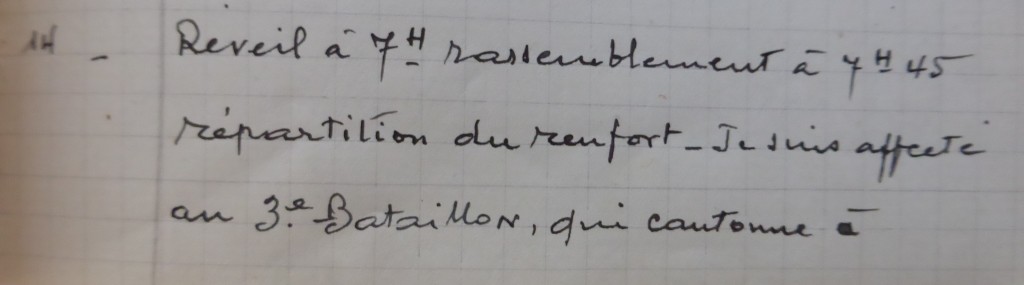 14 - Reveil à 7H rassemblement à 7H 45
répartition du renfort - Je suis affecté
au 3.e Bataillon, qui cantonne à